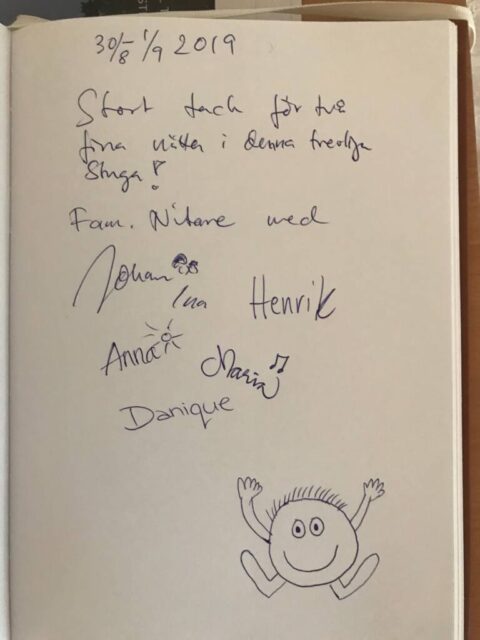 30/8 - 1/9 2019
Stort tack för två
fina nätter i denna trevliga
Stuga!
Fam. Nitare med
Johan
Ina Henrik
Anna Maria
Danique